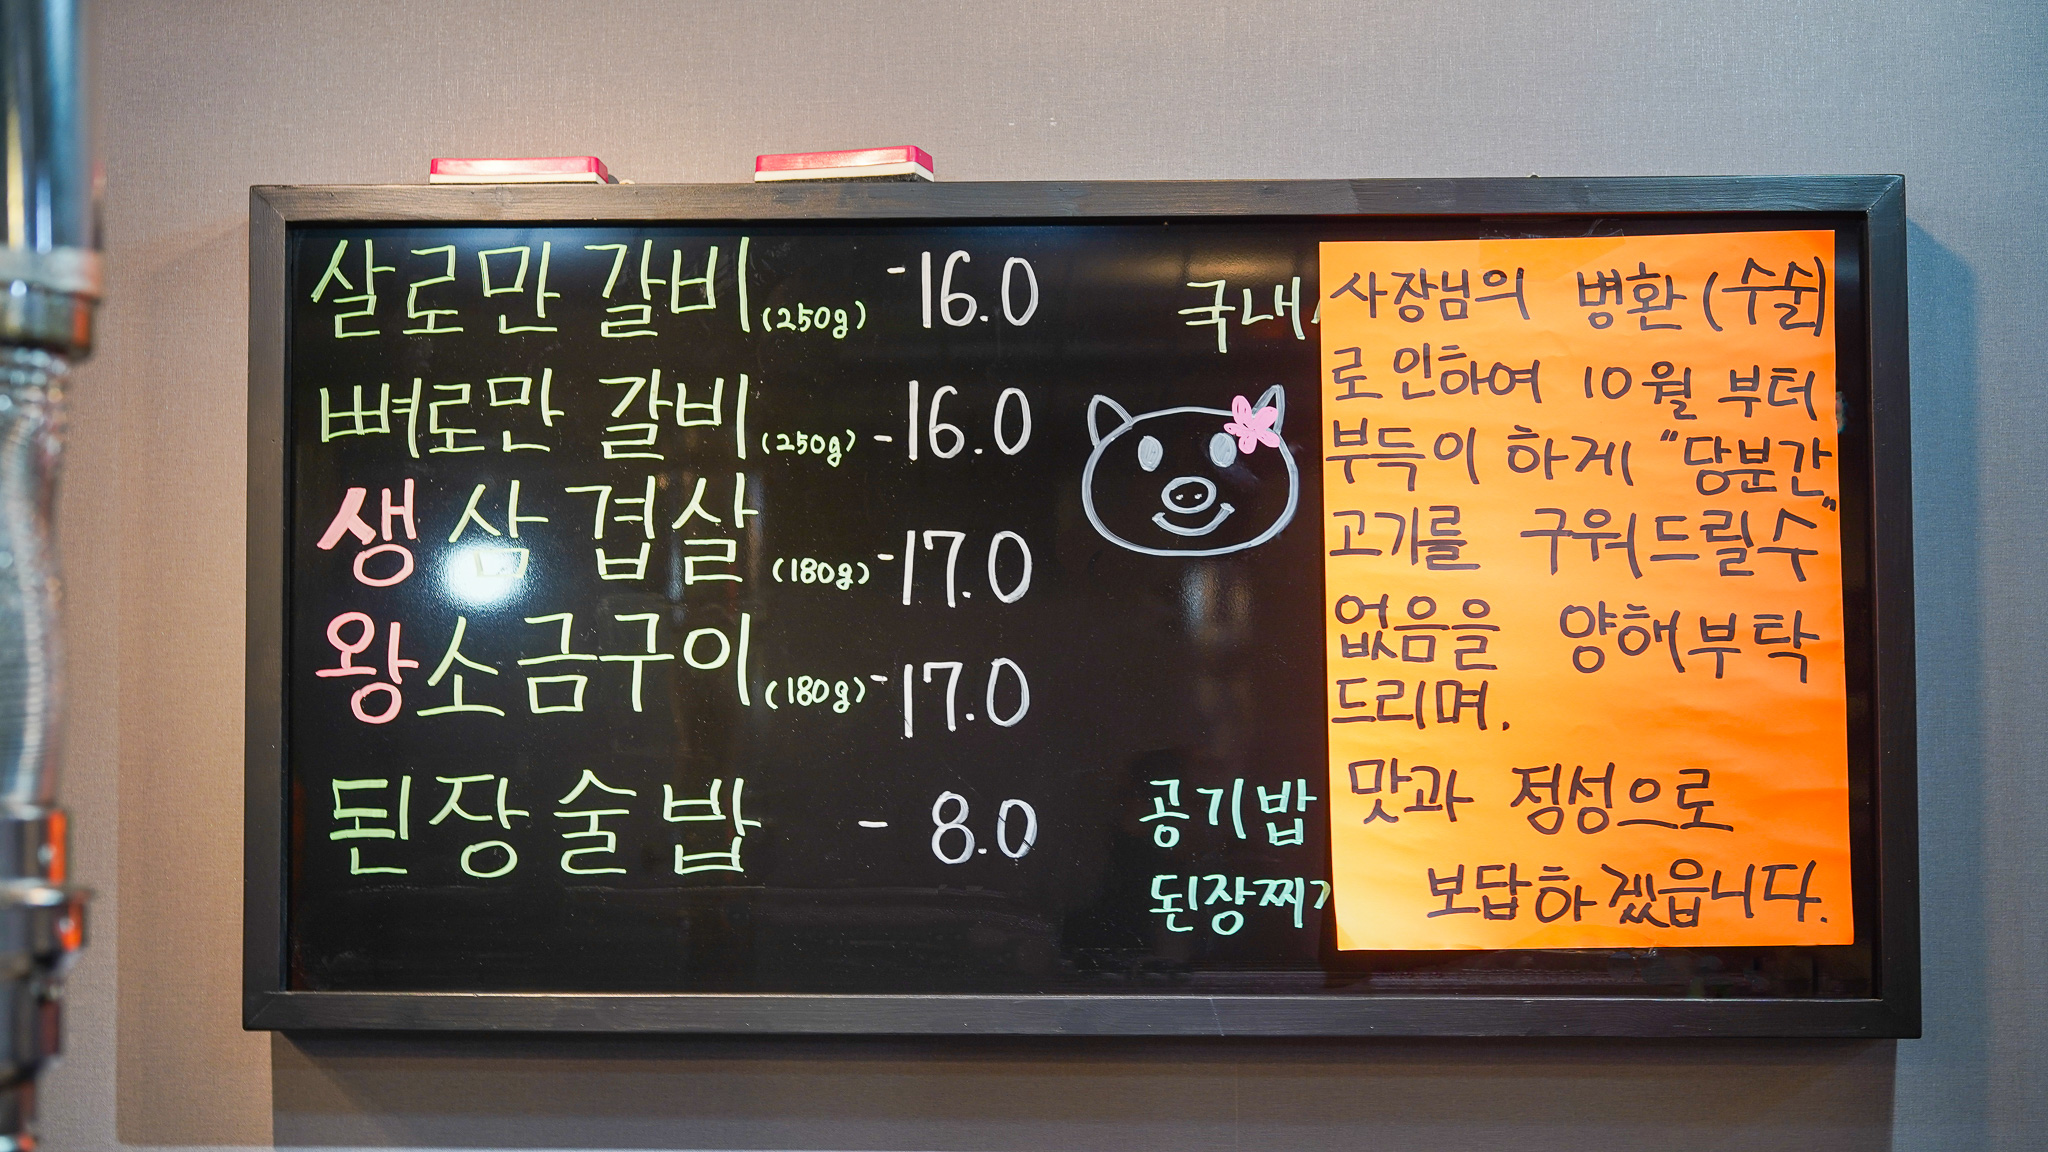 살로만 갈비 (250g) - 16.0
뼈로만 갈비 (250g) - 16.0
생삼겹살 (180g) - 17.0
왕소금구이 (180g) - 17.0
된장술밥 - 8.0
국내
공기밥
된장찌
사장님의 병환(수술)
로 인하여 10월 부터
부득이 하게 "당분간"
고기를 구워드릴수
없음을 양해부탁
드리며.
맛과 정성으로
보답하겠읍니다.